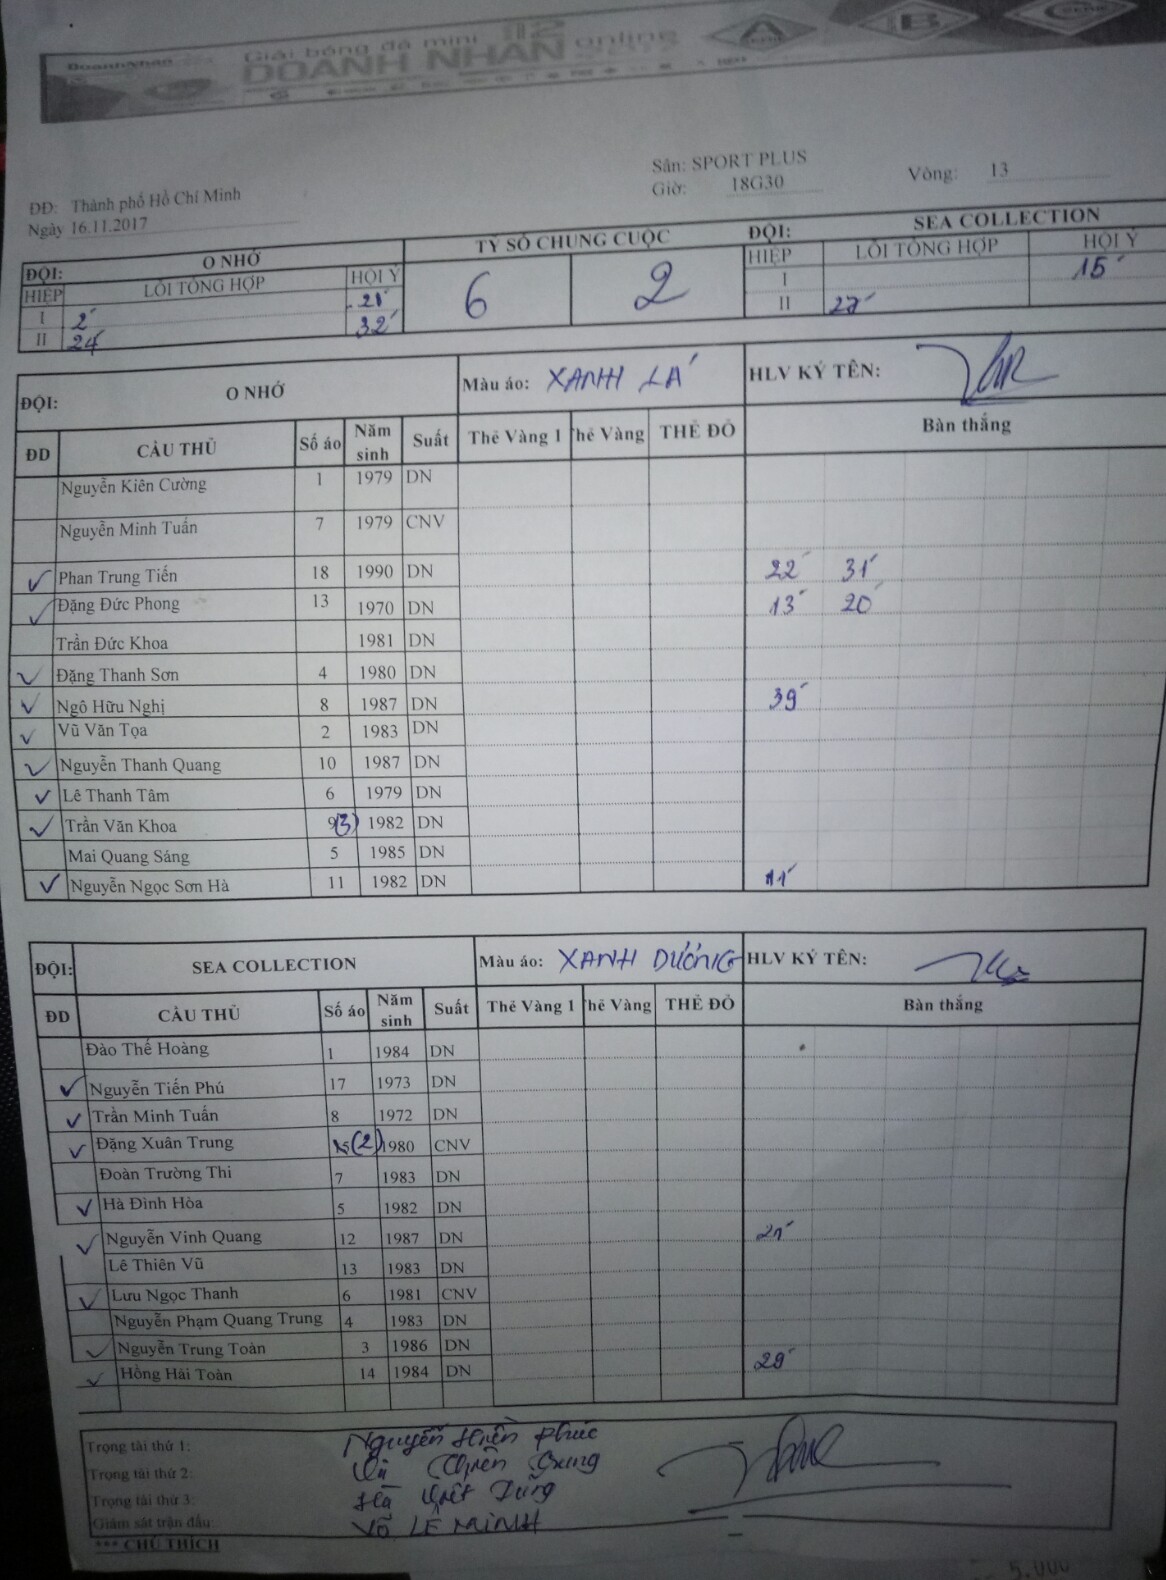 Giải bóng đá mini
DOANH NHÂN online
A
B
C
Sân: SPORT PLUS
ĐĐ: Thành phố Hồ Chí Minh
Giờ: 18G30
Vòng: 13
Ngày 16.11.2017
ĐỘI: O NHỚ
TỶ SỐ CHUNG CUỘC
ĐỘI: SEA COLLECTION
HIỆP LỖI TỔNG HỢP HỘI Ý
6 2
HIỆP LỖI TỔNG HỢP HỘI Ý
I 2' 21'
I 15'
II 24' 32'
II 27'
ĐỘI: O NHỚ Màu áo: XANH LÁ HLV KÝ TÊN:
ĐD CẦU THỦ Số áo Năm sinh Suất Thẻ Vàng 1 Thẻ Vàng THẺ ĐỎ Bàn thắng
Nguyễn Kiên Cường 1 1979 DN
Nguyễn Minh Tuấn 7 1979 CNV
✓ Phan Trung Tiến 18 1990 DN 22' 31'
✓ Đặng Đức Phong 13 1970 DN 13' 20'
Trần Đức Khoa 1981 DN
✓ Đặng Thanh Sơn 4 1980 DN
✓ Ngô Hữu Nghị 8 1987 DN 39'
✓ Vũ Văn Tọa 2 1983 DN
✓ Nguyễn Thanh Quang 10 1987 DN
✓ Lê Thanh Tâm 6 1979 DN
✓ Trần Văn Khoa 9(3) 1982 DN
Mai Quang Sáng 5 1985 DN
✓ Nguyễn Ngọc Sơn Hà 11 1982 DN 11'
ĐỘI: SEA COLLECTION Màu áo: XANH DƯƠNG HLV KÝ TÊN:
ĐD CẦU THỦ Số áo Năm sinh Suất Thẻ Vàng 1 Thẻ Vàng THẺ ĐỎ Bàn thắng
Đào Thế Hoàng 1 1984 DN
✓ Nguyễn Tiến Phú 17 1973 DN
✓ Trần Minh Tuấn 8 1972 DN
✓ Đặng Xuân Trung (2) 1980 CNV
Đoàn Trường Thi 7 1983 DN
✓ Hà Đình Hòa 5 1982 DN
✓ Nguyễn Vinh Quang 12 1987 DN 21'
Lê Thiên Vũ 13 1983 DN
✓ Lưu Ngọc Thanh 6 1981 CNV
Nguyễn Phạm Quang Trung 4 1983 DN
✓ Nguyễn Trung Toàn 3 1986 DN
✓ Hồng Hải Toàn 14 1984 DN 29'
Trọng tài thứ 1: Nguyễn Hiền Phúc
Trọng tài thứ 2:
Trọng tài thứ 3: Hà Việt Dũng
Giám sát trận đấu: VÕ LÊ MINH
*** CHÚ THÍCH
5.000